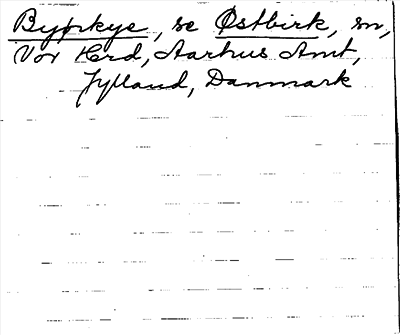 Byprkye, se Østbirk, sn,
Vor Hrd, Aarhus Amt,
Jylland, Danmark